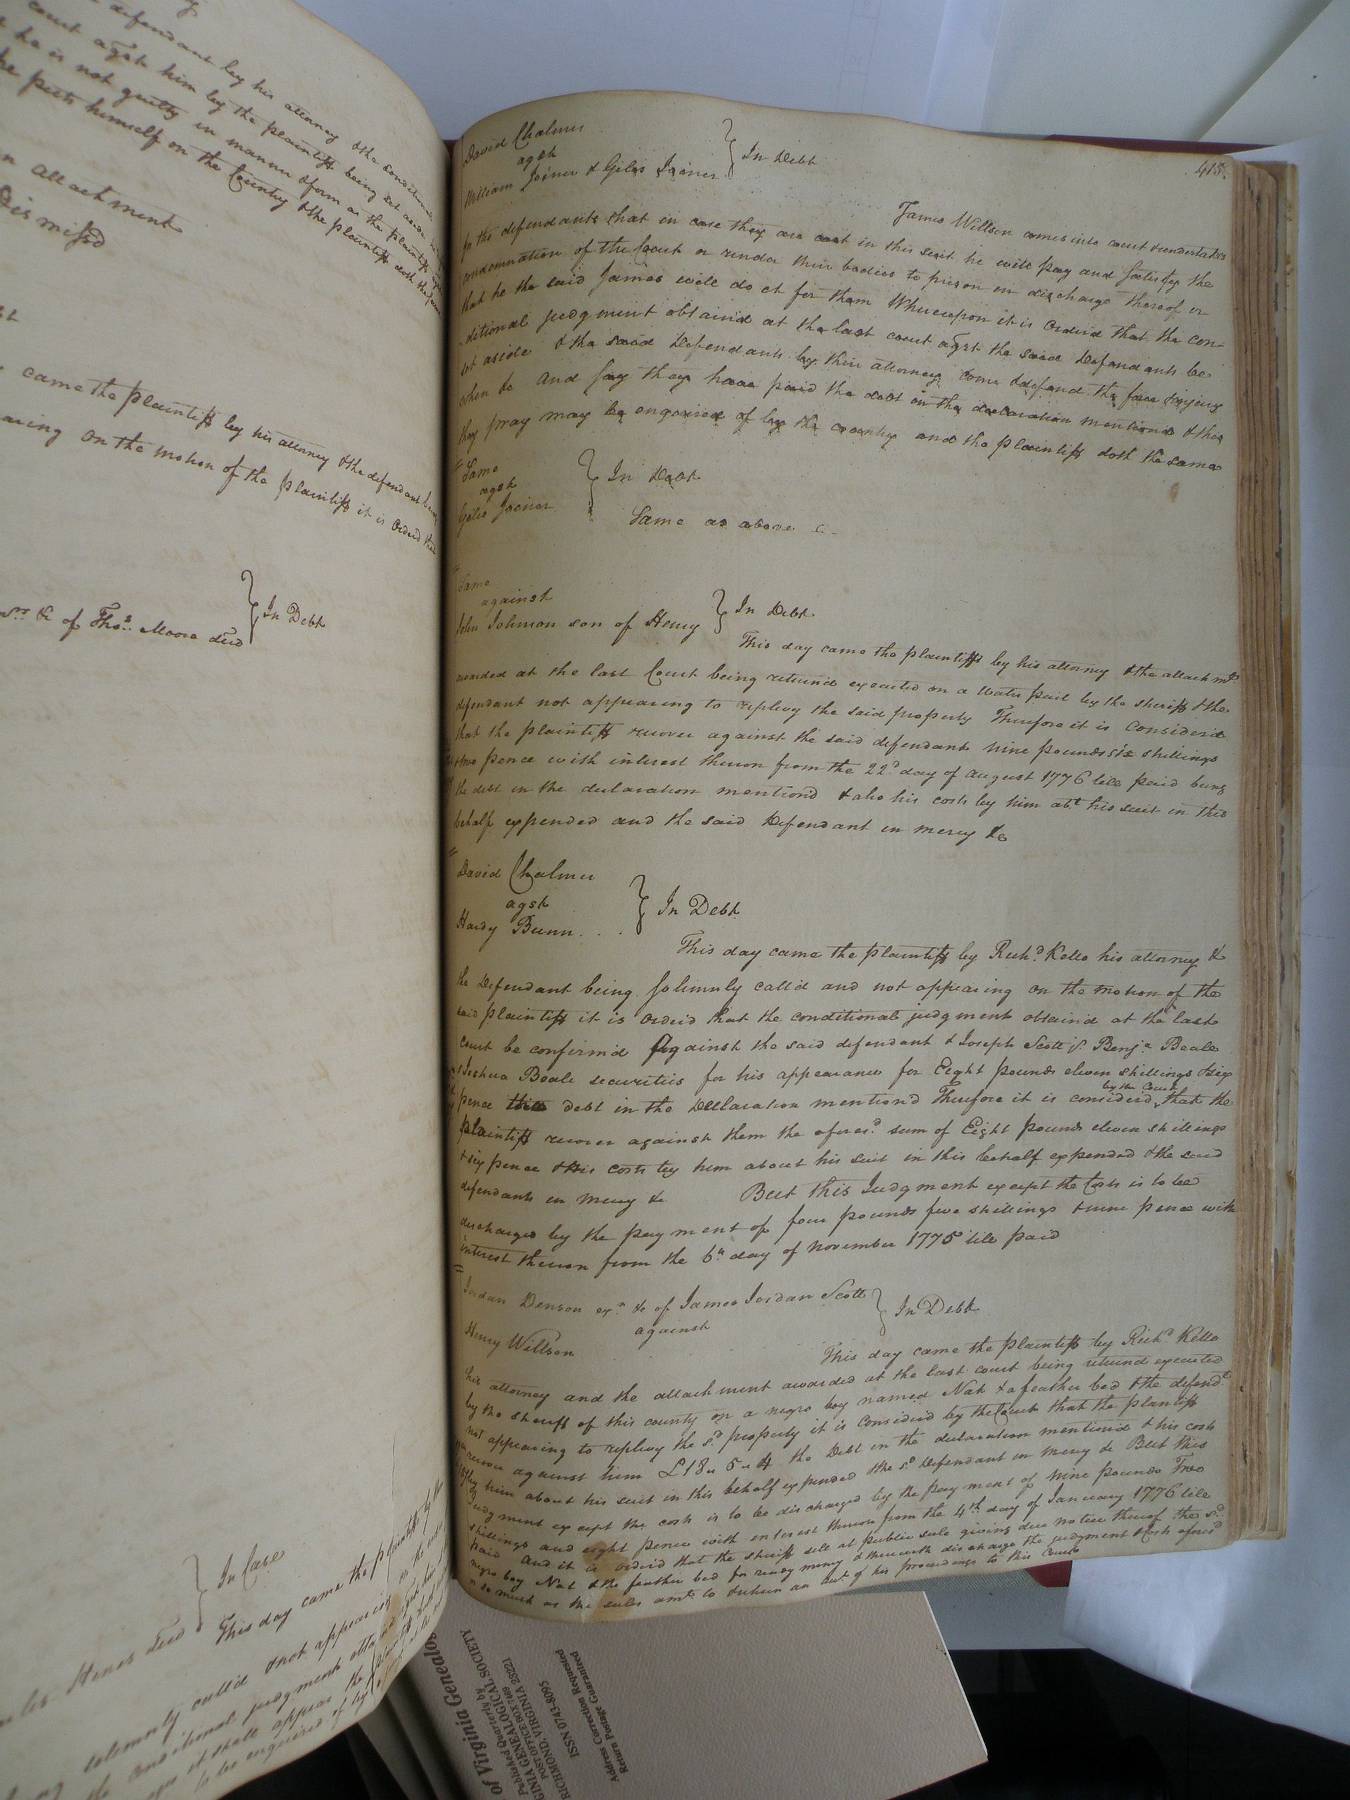 defendant by his attorney & the conditional
court agst him by the plaintiff being set aside
he is not guilty in manner & form as the plaintiff
he puts himself on the Country & the plaintiff doth the same
an attachment
Dismissd
came the plaintiff by his attorney & the defendant being
on the motion of the plaintiff it is Orderd that
&c of Thos. Moore decd } In Debt
decd } In Case
This day came the plaintiff by
solemnly calld & not appearing
the conditional judgment
it shall appear the
to be enquired of by
415.
David Chalmer
agst } In Debt
William Joiner & Giles Joiner
James Willson comes into court & undertakes
for the defendants that in case they are cast in this suit he will pay and satisfy the
condemnation of the Court or render their bodies to prison in discharge thereof or
that he the said James will do it for them Whereupon it is Orderd that the con-
-ditional judgment obtaind at the last court agst the said Defendants be
set aside & the said Defendants by their attorney come & defend the force & injury
when &c and say they have paid the debt in the declaration mentiond & this
they pray may be enquired of by the country and the plaintiff doth the same
Same
agst } In Debt
Giles Joiner
Same as above
Same
against } In Debt
John Johnson son of Henry
This day came the plaintiff by his attorney & the attachmt
awarded at the last Court being returnd executed on a water pail by the sheriff & the
defendant not appearing to replevy the said property Therefore it is Considerd
that the plaintiff recover against the said defendant nine pounds six shillings
& two pence with interest thereon from the 22d day of August 1776 till paid being
the debt in the declaration mentiond & also his costs by him abt his suit in this
behalf expended and the said Defendant in mercy &c
David Chalmer
agst } In Debt
Hardy Bunn . . .
This day came the plaintiff by Richd Kello his attorney &
the Defendant being Solemnly calld and not appearing on the motion of the
said plaintiff it is Orderd that the conditional judgment obtaind at the last
court be confirmd Against the said defendant & Joseph Scott Jr. Benja Beale
& Joshua Beale securities for his appearance for Eight pounds eleven shillings & six
pence debt in the Declaration mentiond Therefore it is considerd by the Court that the
plaintiff recover against them the aforesd sum of Eight pounds eleven shillings
& six pence & His costs by him about his suit in this behalf expended & the said
defendants in mercy &c But this Judgment except the Costs is to be
discharged by the payment of four pounds five shillings & nine pence with
interest thereon from the 6th day of November 1775 till paid
Jordan Denson exr &c of James Jordan Scott
against } In Debt
Henry Willson
This day came the plaintiff by Richd Kello
his attorney and the attachment awarded at the last court being returnd executed
by the sheriff of this county on a negro boy named Nat & a feather bed & the defendt
not appearing to replevy the sd property it is Considerd by the Court that the plantiff
recover against him £18 " 5 " 4 the Debt in the declaration mentiond & his costs
by him about his suit in this behalf expended & the sd Defendant in mercy &c But this
Judgment except the costs is to be discharged by the payment of Nine pounds Two
shillings and eight pence with interest thereon from the 4th day of January 1776 till
paid And it is orderd that the sheriff sell at public sale giving due notice thereof the sd
negro boy Nat & the feather bed for ready money & therewith discharge the judgment & costs aforesd
or so much as the sales amt to & return an act of his proceedings to this Court
of Virginia Genealo
Published Quarterly by
GINIA GENEALOGICAL SOCIETY
POST OFFICE BOX 7469
RICHMOND, VIRGINIA 23221
ISSN 0743-8095
Address Correction Requested
Return Postage Guaranteed